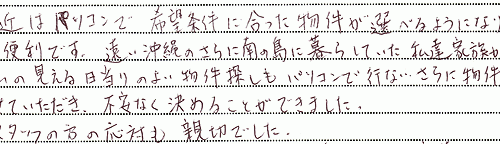 近はパソコンで 希望条件に合った物件が選べるようにな
便利です。遠い沖縄のさらに南の島に暮らしていた私達家族
の見える日当りのよい物件探しもパソコンで行ないさらに物件
ていただき、不安なく決めることができました。
スタッフの方の応対も親切でした。